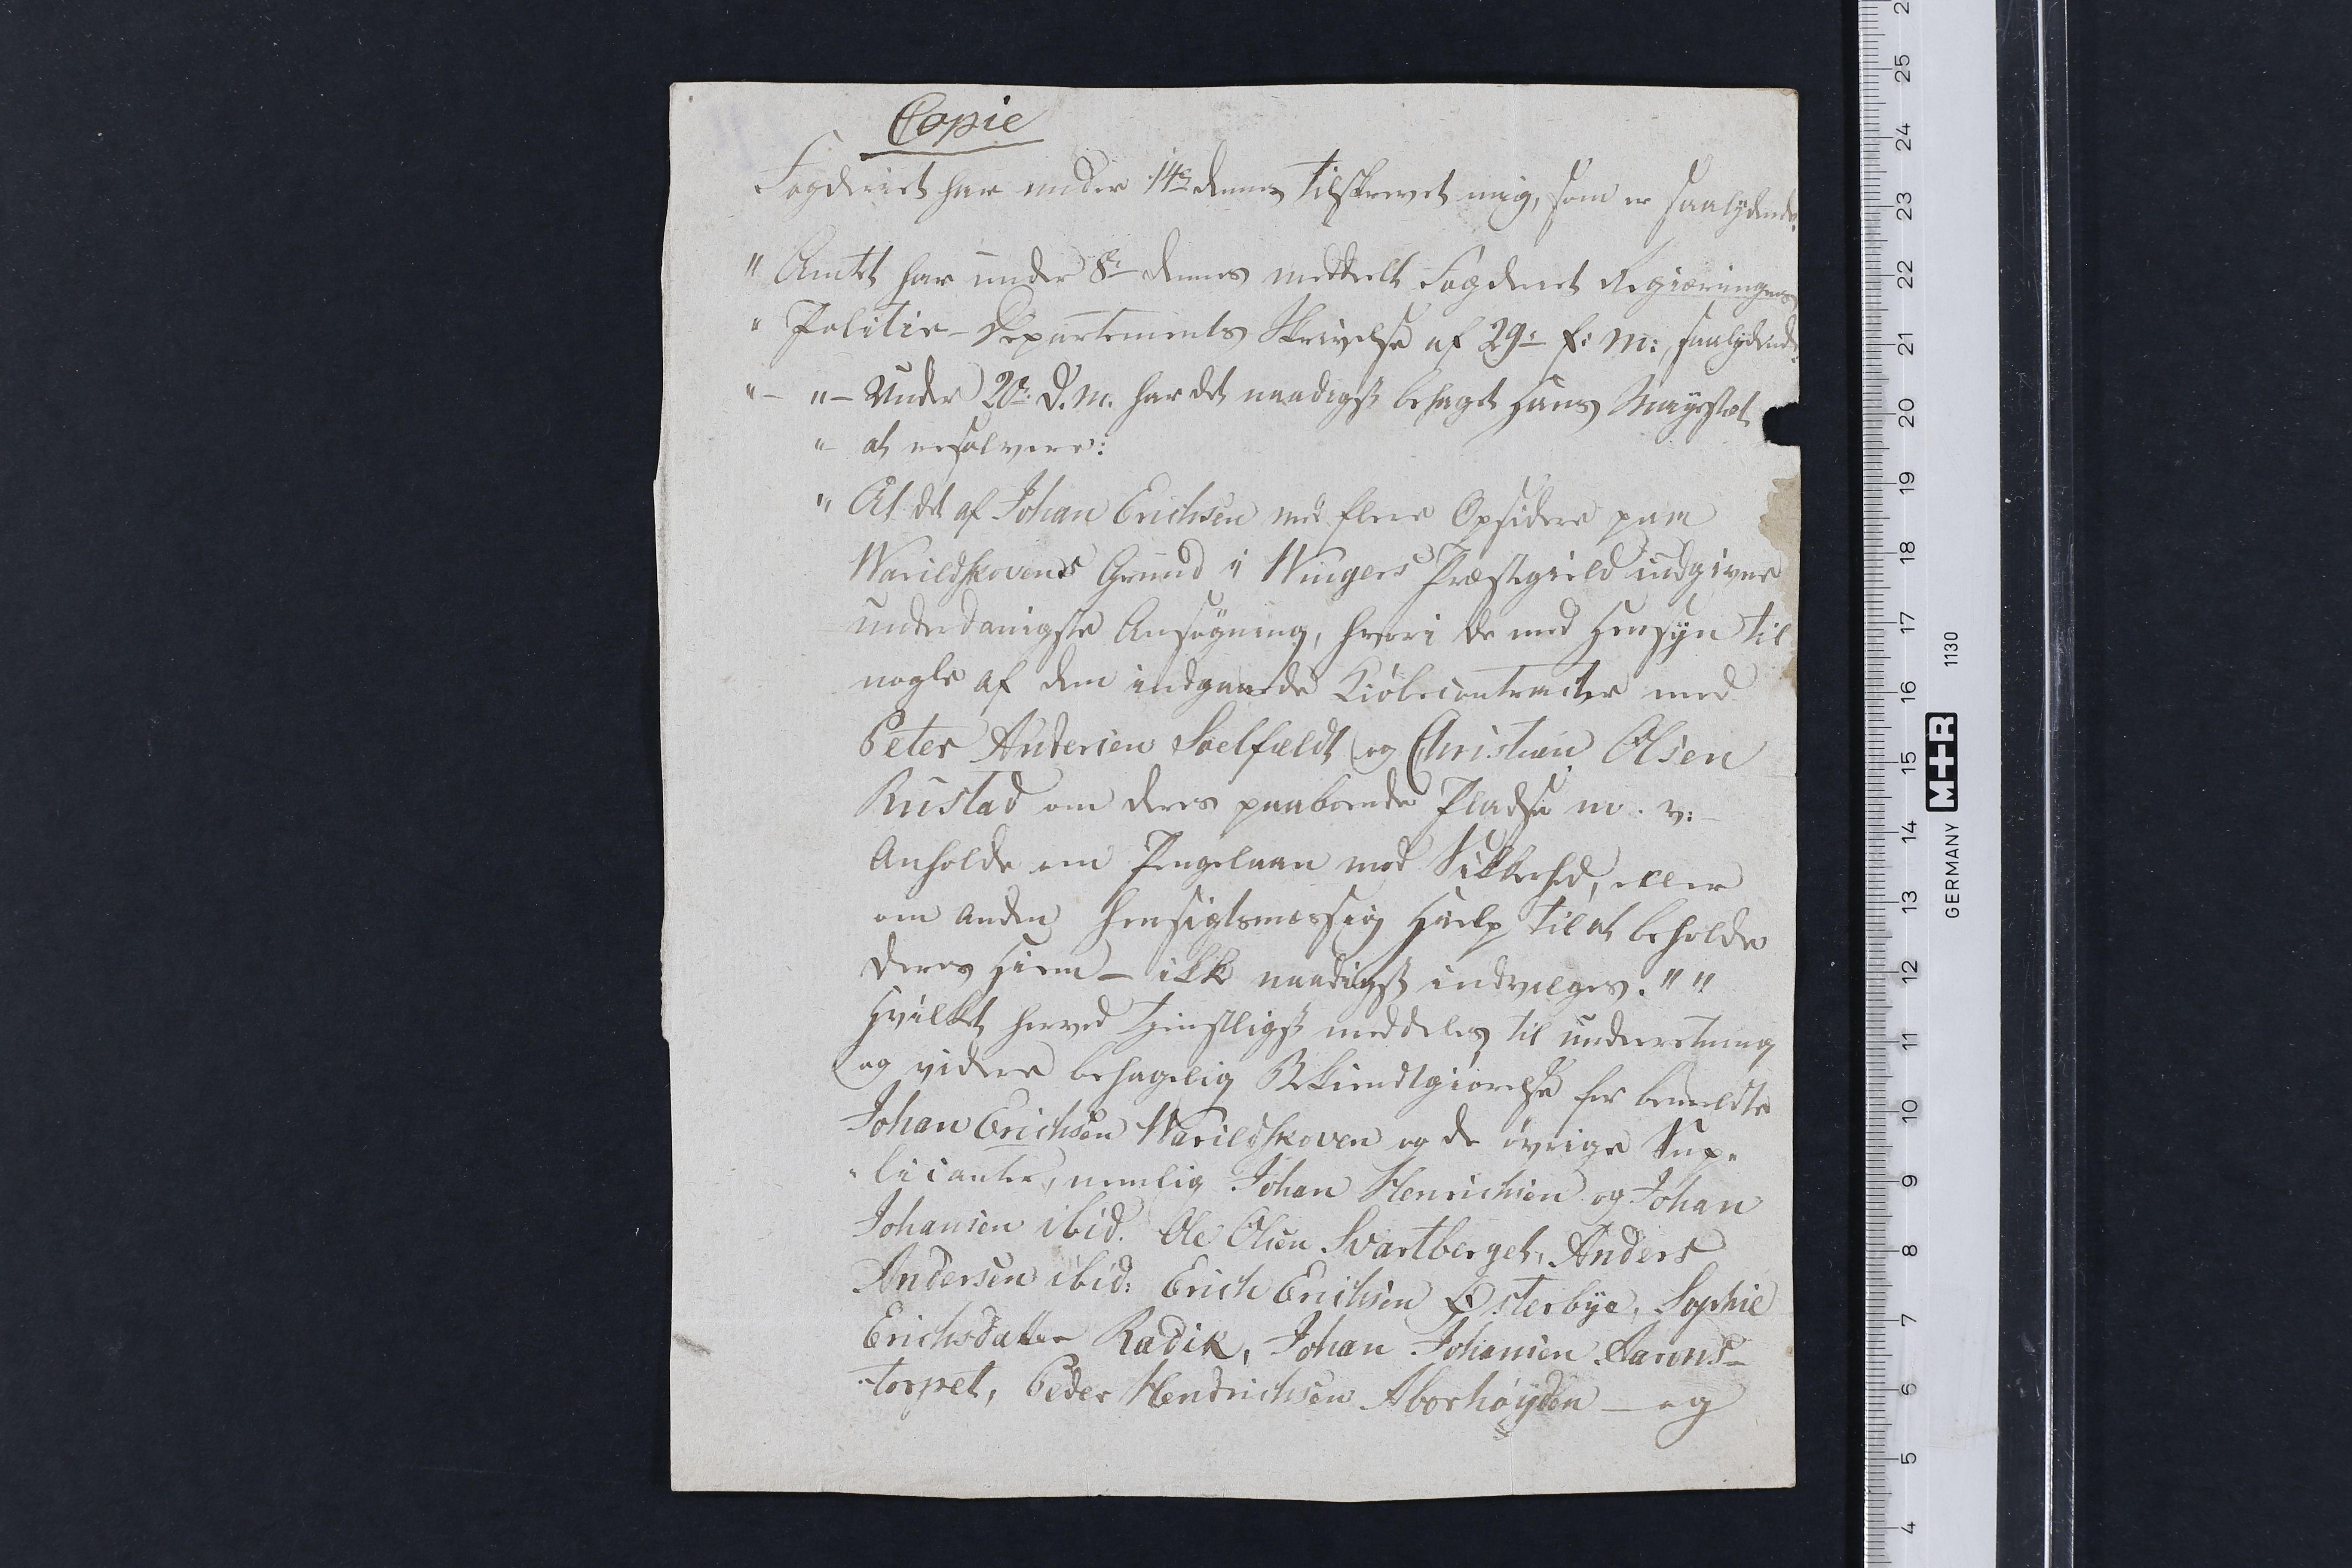 Copie
Fogderiet har under 14de dennes tilskrevet mig, som er saalydende:
" Amtet har under 8de dennes meddeelt Fogderiet Regieringens
" Politie-Departements Skrivelse af 29de f: M:, saalydende:
"- "- Under 20de d. M. har det naadigst behaget Hans Mayestæt
"- at resolvere:
" At det af Johan Erichsen med flere Opsidere paa
Warildskovens Grund i Wingers Præstegield indgivne
underdanigste Ansøgning, hvori de med Hensyn til
nogle af dem indgaaede Kiöbecontracter med
Peter Andersen Soelfeldt og Christian Olsen
Rustad om deres paaboende Pladse m. v:
Anholde om Pengelaan mod Sikkerhed, eller
om anden hensigtsmæssig Hielp til at beholde
deres Hiem - ikke naadigst indvilges. " "
Hvilket herved tienstligst meddeles til underretning
og videre behagelig Bekiendtgiörelse for bemeldte
Johan Erichsen Warildskoven og de övrige Sup-
"licanter, nemlig Johan Henrichsen og Johan
Johansen ibid. Ole Olsen Svartberget, Anders
Andersen ibid: Erich Erichsen Østerbye, Sophie
Erichsdatter Radik, Johan Johansen Aarons-
-torpet, Peder Hendrichsen Aborhöyden - og